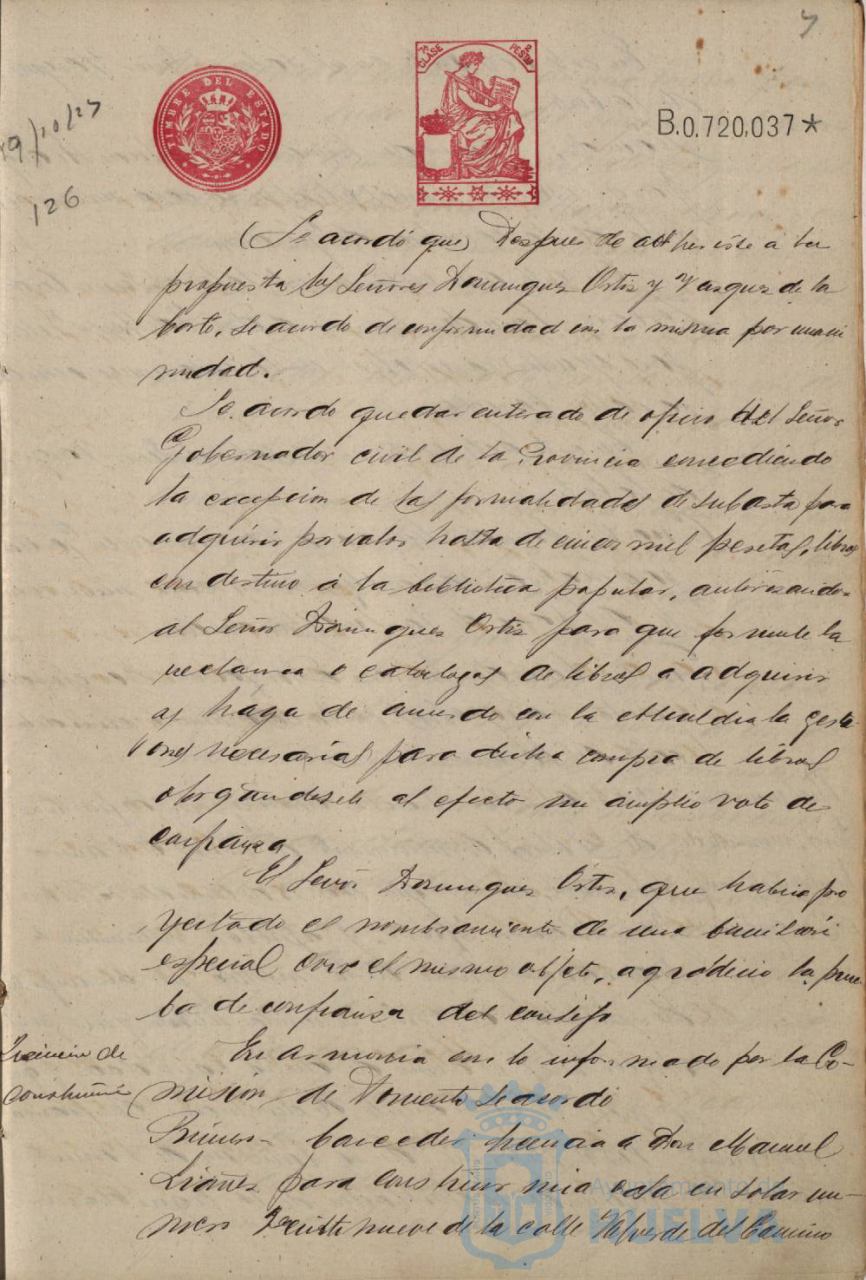 7
TIMBRE DEL ESTADO
7ª CLASE 2 PESETAS
B.0,720,037*
9/10/27
126
(Se acordó que) Despues de adherirse a la
propuesta los Señores Dominguez Ortiz y Vazquez de la
Corte, se acordo de conformidad con la misma por unani
midad.
Se acordo quedar enterado de oficio del Señor
Gobernador civil de la Provincia concediendo
la excepcion de las formalidades de subasta para
adquirir por valor hasta de cinco mil pesetas, libros
con destino á la biblioteca popular, autorizando
al Señor Dominguez Ortiz para que formule la
o catalogos de libros a adquirir
y haga de acuerdo con la Alcaldia la gesti
ones necesarias para dicha compra de libros
otorgandosele al efecto un amplio voto de
confianza
El Señor Dominguez Ortiz, que habia pro
yectado el nombramiento de una
especial con el mismo objeto, agradecio la prue
ba de confianza del consejo
Licencia de
construir
En armonia con lo informado por la Co-
misión de Fomento se acordó
Primero- Conceder licencia a Don Manuel
Liañez para construir una casa en solar nu-
mero veinte nueve de la calle Valverde del Camino
Ayuntamiento de
HUELVA